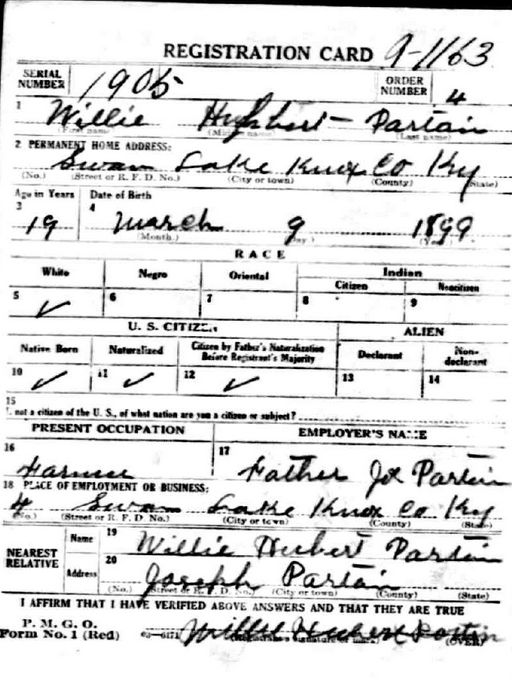 REGISTRATION CARD 9-1163
SERIAL NUMBER 1905 ORDER NUMBER 4
1 Willie Hubbert Partain
(First name) (Middle name) (Last name)
2 PERMANENT HOME ADDRESS:
Swan Lake Knox Co Ky
(No.) (Street or R. F. D. No.) (City or town) (County) (State)
Age in Years Date of Birth
3 4
19 March 9 1899
(Month.) (Day.) (Year.)
RACE
White Negro Oriental Indian
Citizen Noncitizen
5 ✓ 6 7 8 9
U. S. CITIZEN ALIEN
Native Born Naturalized Citizen by Father's Naturalization Before Registrant's Majority Declarant Non-declarant
10 ✓ 11 ✓ 12 ✓ 13 14
15
not a citizen of the U. S., of what nation are you a citizen or subject?
PRESENT OCCUPATION EMPLOYER'S NAME
16 17
Farmer Father Jo Partain
18 PLACE OF EMPLOYMENT OR BUSINESS:
4 Swan Lake Knox Co Ky
(No.) (Street or R. F. D. No.) (City or town) (County) (State)
NEAREST RELATIVE Name 19 Willie Hubert Partain
Address 20 Joseph Partain
(No.) (Street or R. F. D. No.) (City or town) (County) (State)
I AFFIRM THAT I HAVE VERIFIED ABOVE ANSWERS AND THAT THEY ARE TRUE
P. M. G. O.
Form No. 1 (Red) 03—6171 Willie Hubert Partin
(OVER)